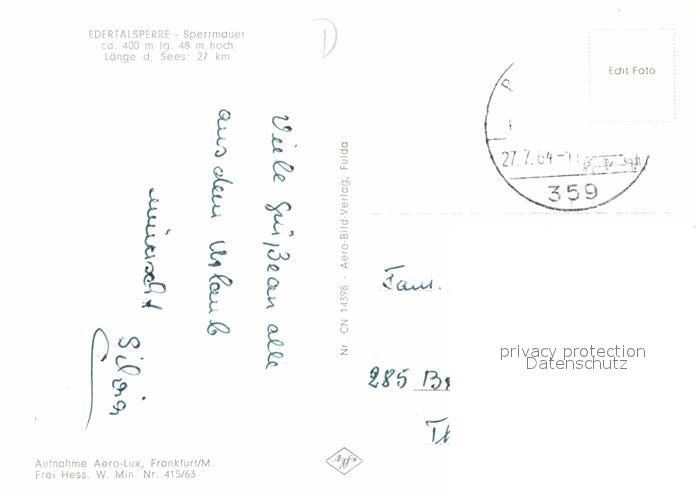 EDERTALSPERRE - Sperrmauer
ca. 400 m lg. 48 m hoch
Länge d. Sees: 27 km
Viele Grüße an alle
aus dem Urlaub
wünscht
Silvia
Aufnahme Aero-Lux, Frankfurt/M.
Frei Hess. W. Min. Nr. 415/63
Nr. CN 14398 - Aero-Bild-Verlag, Fulda
Echt Foto
27.7.64
359
Fam.
285
privacy protection
Datenschutz